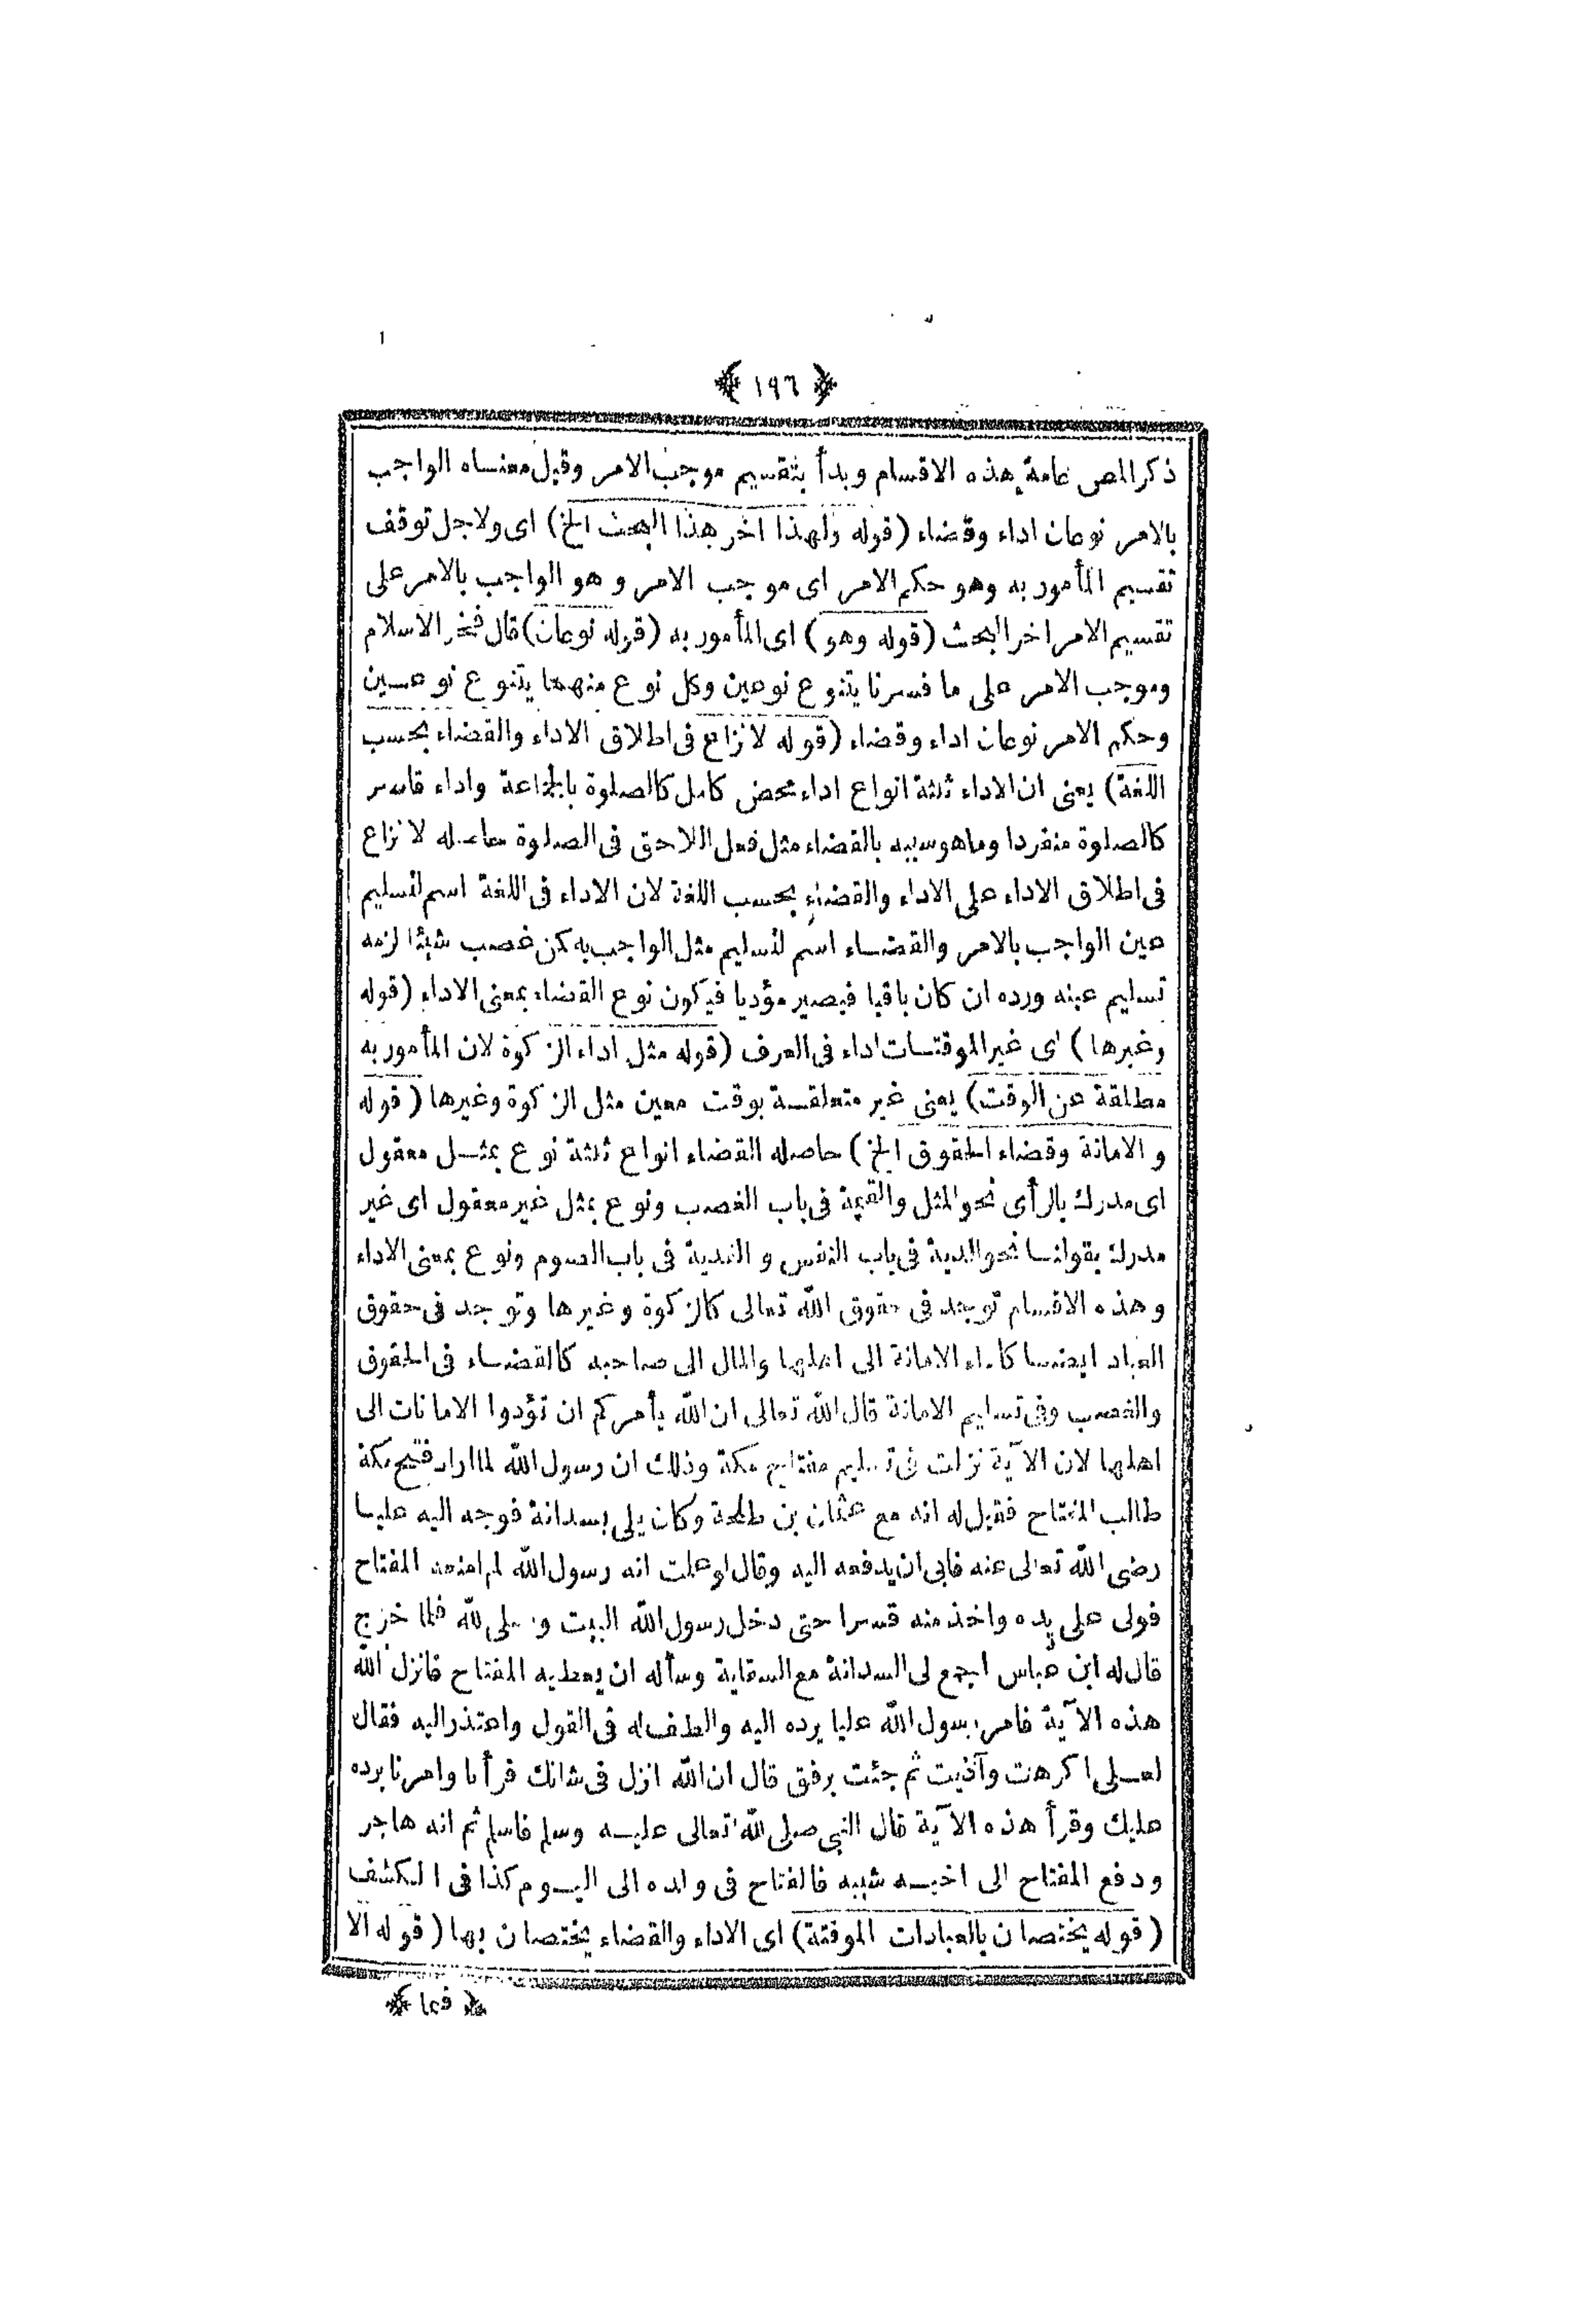 ﴿ ١٩٦ ﴾
ذكر المص عامة هذه الاقسام وبدأ بتقسيم موجب الامر وقيل معناه الواجب
بالامر نوعان اداء وقضاء (قوله ولهذا اخر هذا البحث الخ) اى ولاجل توقف
تقسيم المأمور به وهو حكم الامر اى موجب الامر وهو الواجب بالامر على
تقسيم الامر اخر البحث (قوله وهو) اى المأمور به (قوله نوعان) قال فخر الاسلام
وموجب الامر على ما فسرنا يتنوع نوعين وكل نوع منهما يتنوع نوعين
وحكم الامر نوعان اداء وقضاء (قوله لا نزاع فى اطلاق الاداء والقضاء بحسب
اللغة) يعنى ان الاداء ثلثة انواع اداء محض كامل كالصلوة بالجماعة واداء قاصر
كالصلوة منفردا وما هو شبيه بالقضاء مثل فعل اللاحق فى الصلوة حاصله لا نزاع
فى اطلاق الاداء على الاداء والقضاء بحسب اللغة لان الاداء فى اللغة اسم لتسليم
عين الواجب بالامر والقضاء اسم لتسليم مثل الواجب به كمن غصب شيئا لزمه
تسليم عينه ورده ان كان باقيا فيصير مؤديا فيكون نوع القضاء بمعنى الاداء (قوله
وغيرها) اى غير الموقتات اداء فى العرف (قوله مثل اداء الزكوة لان المأمور به
مطلقة عن الوقت) يعنى غير متعلقة بوقت معين مثل الزكوة وغيرها (قوله
والامانة وقضاء الحقوق الخ) حاصله القضاء انواع ثلثة نوع بمثل معقول
اى مدرك بالرأى نحو المثل والقيمة فى باب الغصب ونوع بمثل غير معقول اى غير
مدرك بقولنا نحو الدية فى باب النفس والفدية فى باب الصوم ونوع بمعنى الاداء
وهذه الاقسام توجد فى حقوق الله تعالى كالزكوة وغيرها وتوجد فى حقوق
العباد ايضا كاداء الامانة الى اهلها والمال الى صاحبه كالقضاء فى الحقوق
والغصب وفى تسليم الامانة قال الله تعالى ان الله يأمركم ان تؤدوا الامانات الى
اهلها لان الآية نزلت فى تسليم مفتاح مكة وذلك ان رسول الله لما اراد فتح مكة
طالب المفتاح فقيل له انه مع عثمان بن طلحة وكان يلى بسدانة فوجه اليه عليا
رضى الله تعالى عنه فابى ان يدفعه اليه وقال لو علمت انه رسول الله لم امنعه المفتاح
فولى على يده واخذ منه قسرا حتى دخل رسول الله البيت وصلى لله فلما خرج
قال له ابن عباس اجمع لى السدانة مع السقاية وسأله ان يعطيه المفتاح فانزل الله
هذه الآية فامر رسول الله عليا يرده اليه والطف له فى القول واعتذر اليه فقال
لعلى اكرهت وآذيت ثم جئت برفق قال ان الله انزل فى شانك قرأنا وامرنا برده
عليك وقرأ هذه الآية قال النبى صلى الله تعالى عليه وسلم فاسلم ثم انه هاجر
ودفع المفتاح الى اخيه شيبه فالمفتاح فى ولده الى اليوم كذا فى الكشف
(قوله يختصان بالعبادات الموقتة) اى الاداء والقضاء يختصان بها (قوله الا
﴿ فيما ﴾